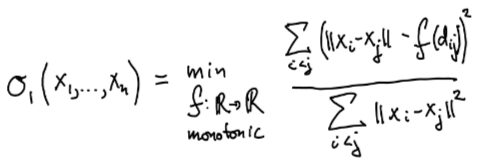 σ₁(x₁,...,xₙ) = min f:ℝ→ℝ monotonic Σ_{i<j} (‖xᵢ-xⱼ‖ - f(dᵢⱼ))² / Σ_{i<j} ‖xᵢ-xⱼ‖²